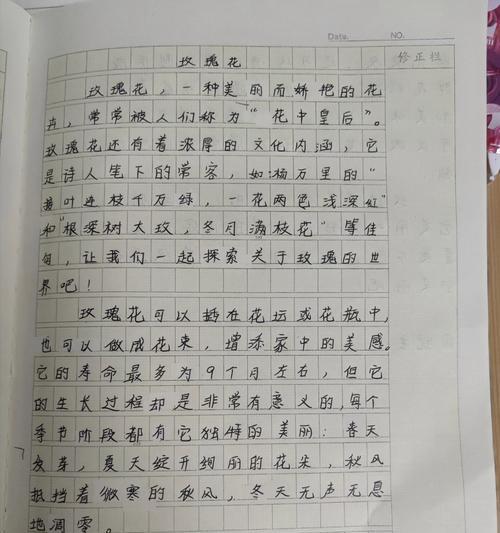 Date.
NO.
修正栏
玫瑰花
玫瑰花，一种美丽而娇艳的花
卉，常常被人们称为“花中皇后”。
玫瑰花还有着浓厚的文化内涵，它
是诗人笔下的常客，如：杨万里的“
接叶连枝千万绿，一花两色浅深红”
和“根深树大玫，冬月满枝花”等佳
句，让我们一起探索关于玫瑰的世
界吧！
玫瑰花可以插在花坛或花瓶中，
也可以做成花束，增添家中的美感。
它的寿命最多为9个月左右，但它
的生长过程却是非常有意义的，每个
季节阶段都有它独特的美丽：春天
发芽，夏天绽开绚丽的花朵，秋风
抵挡着微寒的秋风，冬天无声无息
地凋零。